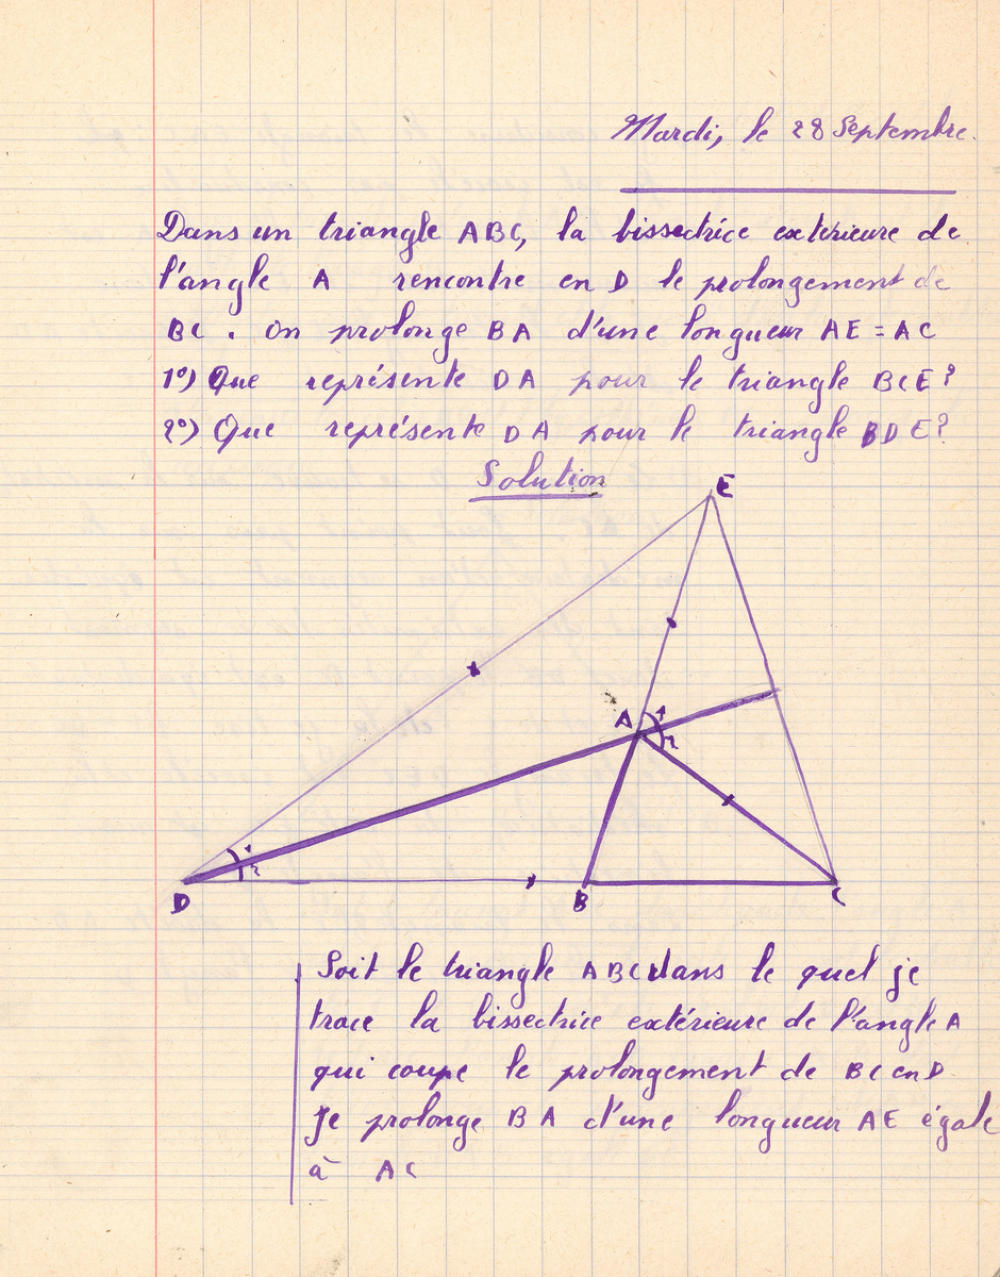 Mardi, le 28 Septembre.
Dans un triangle ABC, la bissectrice extérieure de
l'angle A rencontre en D le prolongement de
BC. On prolonge BA d'une longueur AE = AC
1°) Que représente DA pour le triangle BCE?
2°) Que représente DA pour le triangle BDE?
Solution
E
A
1
2
1
2
D
B
C
Soit le triangle ABC dans le quel je
trace la bissectrice extérieure de l'angle A
qui coupe le prolongement de BC en D.
Je prolonge BA d'une longueur AE égale
à AC